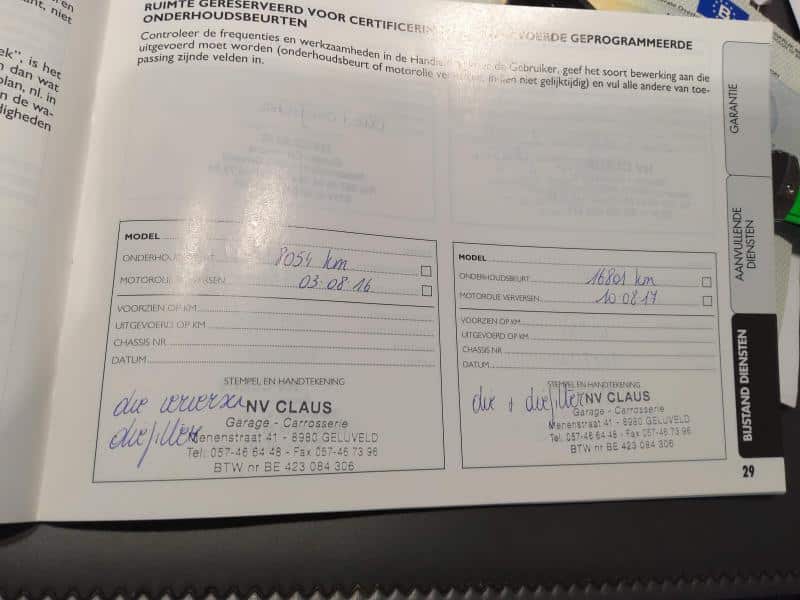 nt, niet
ek", is het
dan wat
plan, nl. in
n de wa-
digheden
RUIMTE GERESERVEERD VOOR CERTIFICERIN VOERDE GEPROGRAMMEERDE
ONDERHOUDSBEURTEN
Controleer de frequenties en werkzaamheden in de Handle de Gebruiker, geef het soort bewerking aan die
uitgevoerd moet worden (onderhoudsbeurt of motorolie ver niet gelijktijdig) en vul alle andere van toe-
passing zijnde velden in.
MODEL
ONDERHOUDSBEURT 8054 km
MOTOROLIE VERVERSEN 03.08.16
VOORZIEN OP KM
UITGEVOERD OP KM
CHASSIS NR
DATUM
STEMPEL EN HANDTEKENING
olie verversen NV CLAUS
Garage - Carrosserie
oliefilter Menenstraat 41 - 8980 GELUVELD
Tel: 057-46 64 48 - Fax 057-46 73 96
BTW nr BE 423 084 306
MODEL
ONDERHOUDSBEURT 16801 km
MOTOROLIE VERVERSEN 10.08.17
VOORZIEN OP KM
UITGEVOERD OP KM
CHASSIS NR
DATUM
STEMPEL EN HANDTEKENING
olie + oliefilter NV CLAUS
Garage - Carrosserie
Menenstraat 41 - 8980 GELUVELD
Tel: 057-46 64 48 - Fax 057-46 73 96
BTW nr BE 423 084 306
GARANTIE
AANVULLENDE
DIENSTEN
BIJSTAND DIENSTEN
29
B